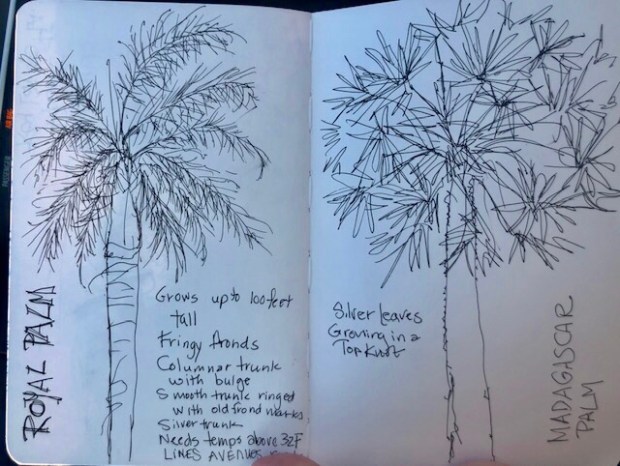 ROYAL PALM
Grows up to 100 feet
tall
Fringy fronds
Columnar trunk
with bulge
Smooth trunk ringed
with old frond marks
Silver trunk
Needs temps above 32F
LINES AVENUES
Silver leaves
Growing in a
Top Knot
MADAGASCAR
PALM